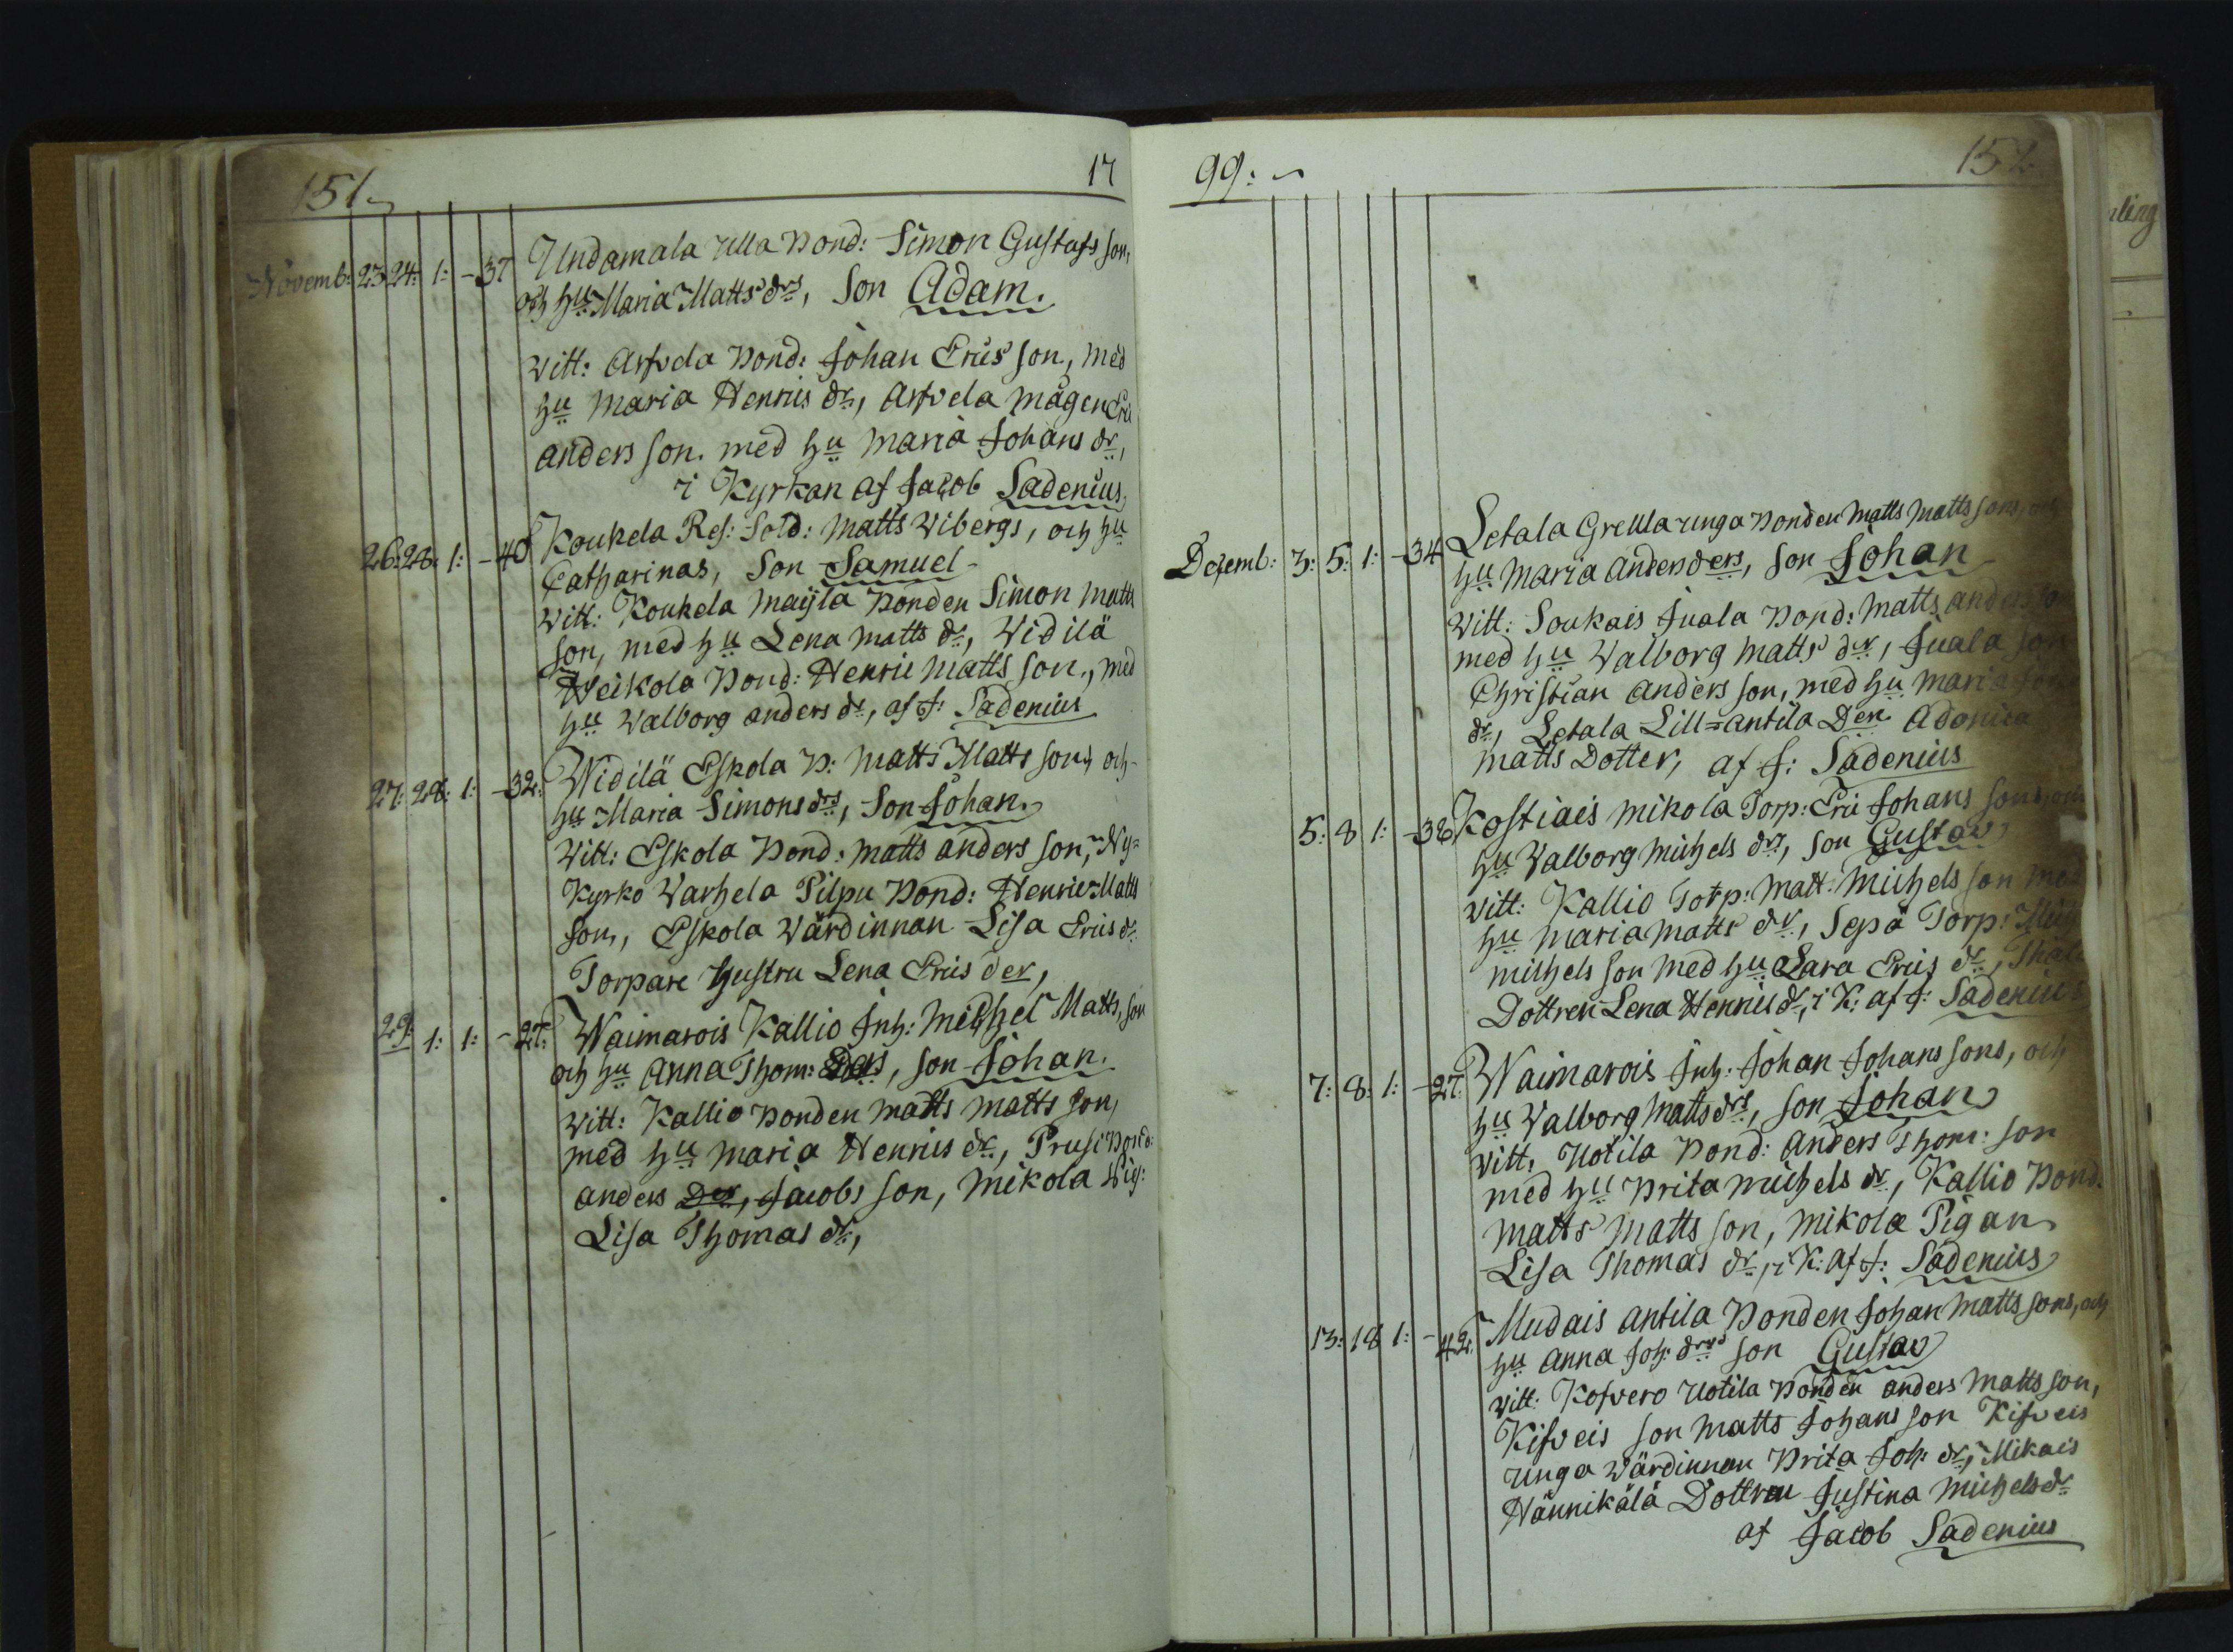 151.
17
Novemb: 23. 24. 1: - 37 Undamala Ulla Bond: Simon Gustafs son,
och hu Maria Mattsdrs, Son Adam.
Witt: Arfvela Bond: Johan Erics son, med
hu Maria Henrics dr, Arfvela mågen Eric
Anders son. med hu Maria Johans dr,
i Kyrkan af Jacob Sadenius,
26: 28: 1: - 40 Koukela Res: Sold: Matts Wibergs, och hu
Catharinas, Son Samuel
Witt: Koukela Maijla Bonden Simon Matts
son, med hu Lena Matts dr, Widilä
Heikola Bond: Henric Matts son, med
hu Walborg Anders dr, af J: Sadenius
27: 28: 1: - 32: Widilä Eskola B: Matts Matts sons och
hu Maria Simons drs, Son Johan.
Witt: Eskola Bond: Matts Anders son, Ny=
Kyrko Warhela Pilpu Bond: Henric Matts
son, Eskola Wärdinnan Lisa Erics dr
Torpare hustru Lena Erics der,
29. 1: 1: - 27: Waimarois Kallio Inh: Michel Matts son
och hu Anna Thom: Ders, son Johan.
Witt: Kallio Bonden Matts Matts son,
med hu Maria Henrics dr, Prusi Bond:
Anders Der, Jacobs son, Mikola Pig:
Lisa Thomas dr,
99:
152.
Decemb: 3: 5: 1: - 34 Letala Grellla unga Bonden Matts Matts sons, och
hu Maria Anders ders, Son Johan
Witt: Soukais Juala Bond: Matts Anders son
med hu Walborg Matts der, Juala son
Christian Anders son, med hu Maria
dr, Letala Lill=antila Den Adonica
Matts Dotter, af J: Sadenius
5: 8 1: - 38 Kostiais Mikola Torp: Eric Johans sons, och
hu Walborg Michels drs, son Gustav
Witt: Kallio Torp: Matt: Michels son med
hu Maria Matts dr, Sepä Torp: Mich
Michels son med hu Sara Erics dr,
Dottren Lena Henrics dr, i K: af J: Sadenius
7: 8: 1: - 27: Waimarois Inh: Johan Johans sons, och
hu Walborg Matts drs, son Johan
Witt: Uotila Bond: Anders Thom: son
med hu Brita Michels dr, Kallio Bond.
Matts Matts son, Mikola Pigan
Lisa Thomas dr, i K: af J: Sadenius
13: 18 1: - 42. Mudais Antila Bonden Johan Matts sons, och
hu Anna Joh: drs son Gustav
Witt: Kofvero Uotila Bonden Anders Matts son,
Kifveis son Matts Johans son Kifveis
unga Wärdinnan Brita Joh: dr, Mikais
Hännikälä Dottren Justina Michels dr
af Jacob Sadenius
ling